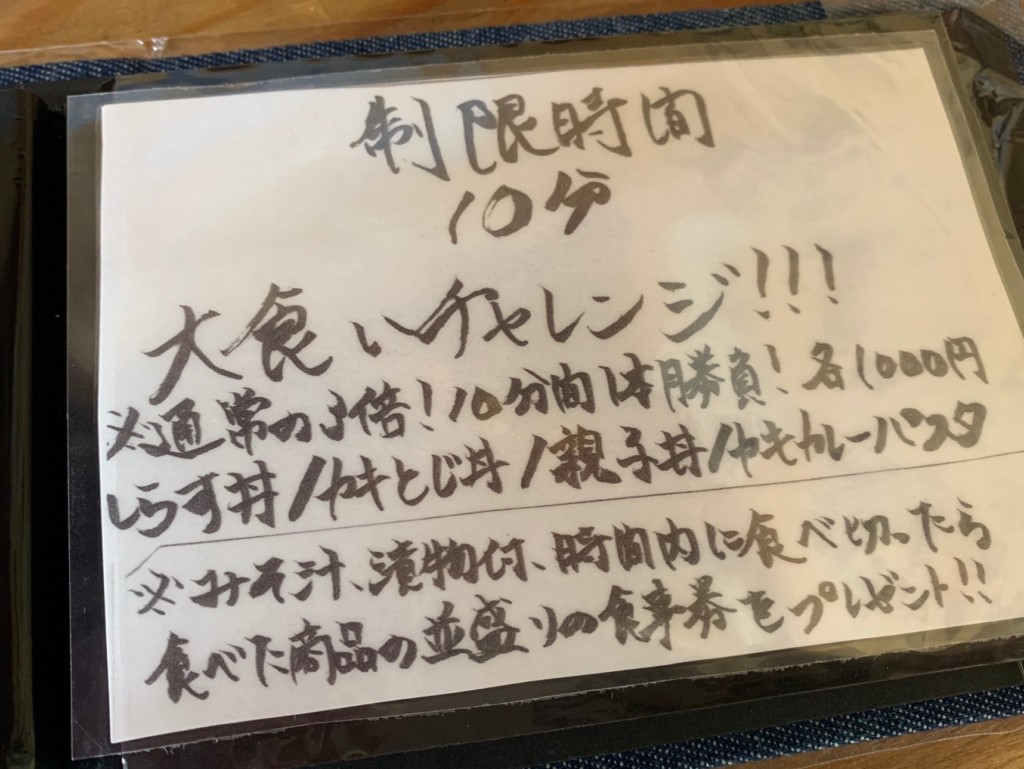 制限時間
10分
大食いチャレンジ!!!
※通常の3倍!10分間1本勝負!各1000円
しらす丼/カキとじ丼/親子丼/カキカレーパスタ
※みそ汁、漬物付、時間内に食べ切ったら
食べた商品の並盛りの食事券をプレゼント!!